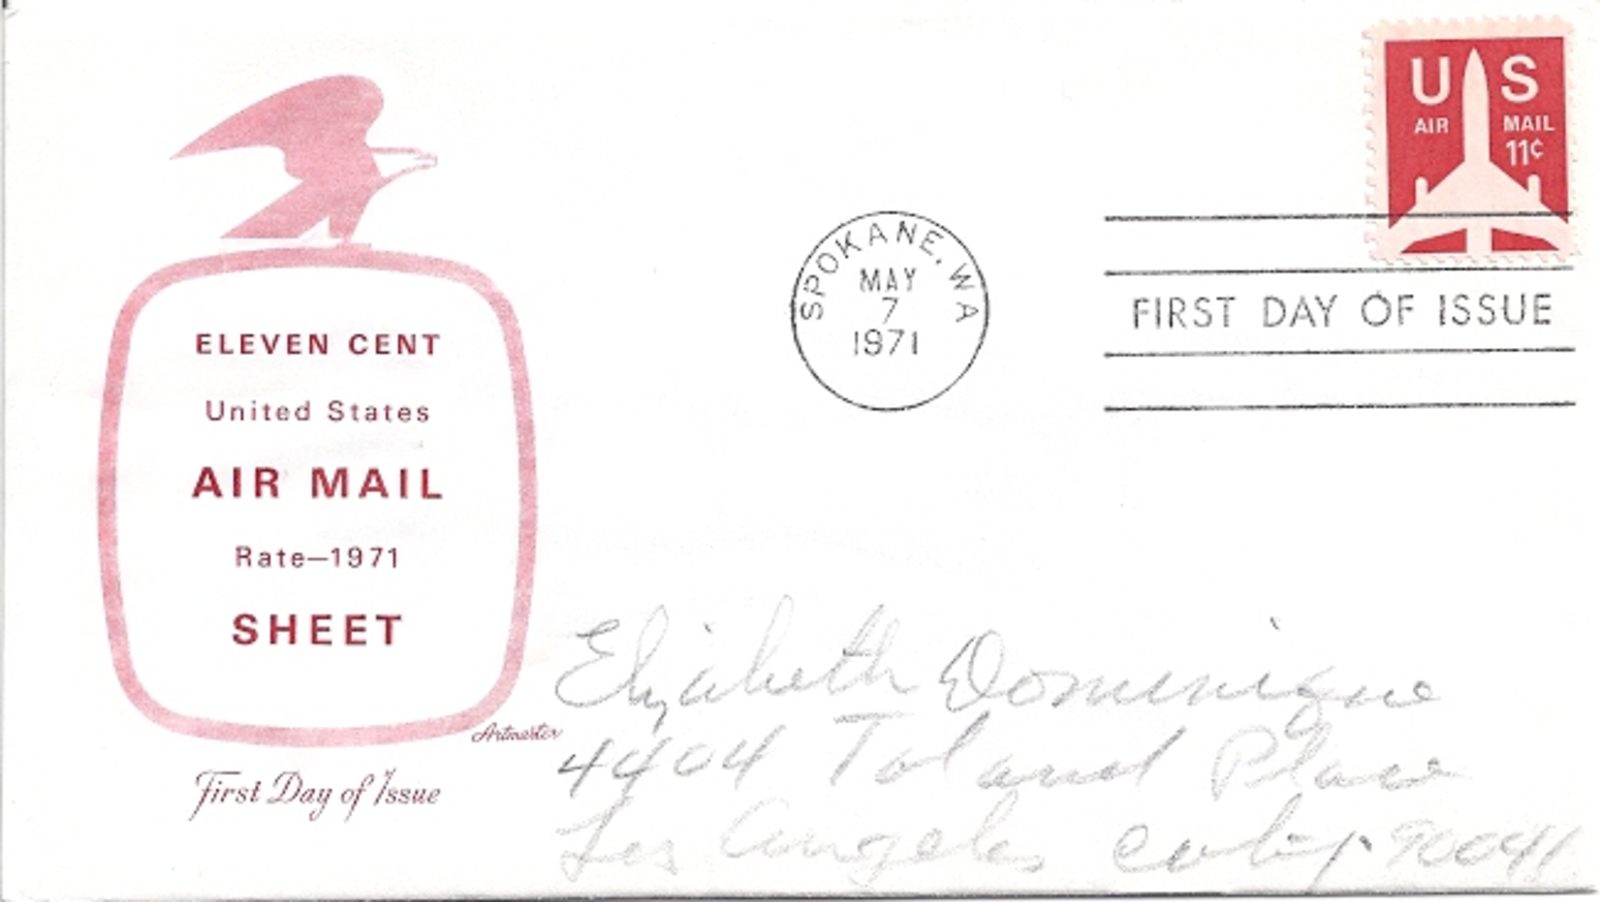 ELEVEN CENT
United States
AIR MAIL
Rate—1971
SHEET
Artmaster
First Day of Issue
SPOKANE, WA
MAY
7
1971
US
AIR MAIL
11¢
FIRST DAY OF ISSUE
Elizabeth Dominique
4404 Toland Place
Los Angeles Calif. 90041